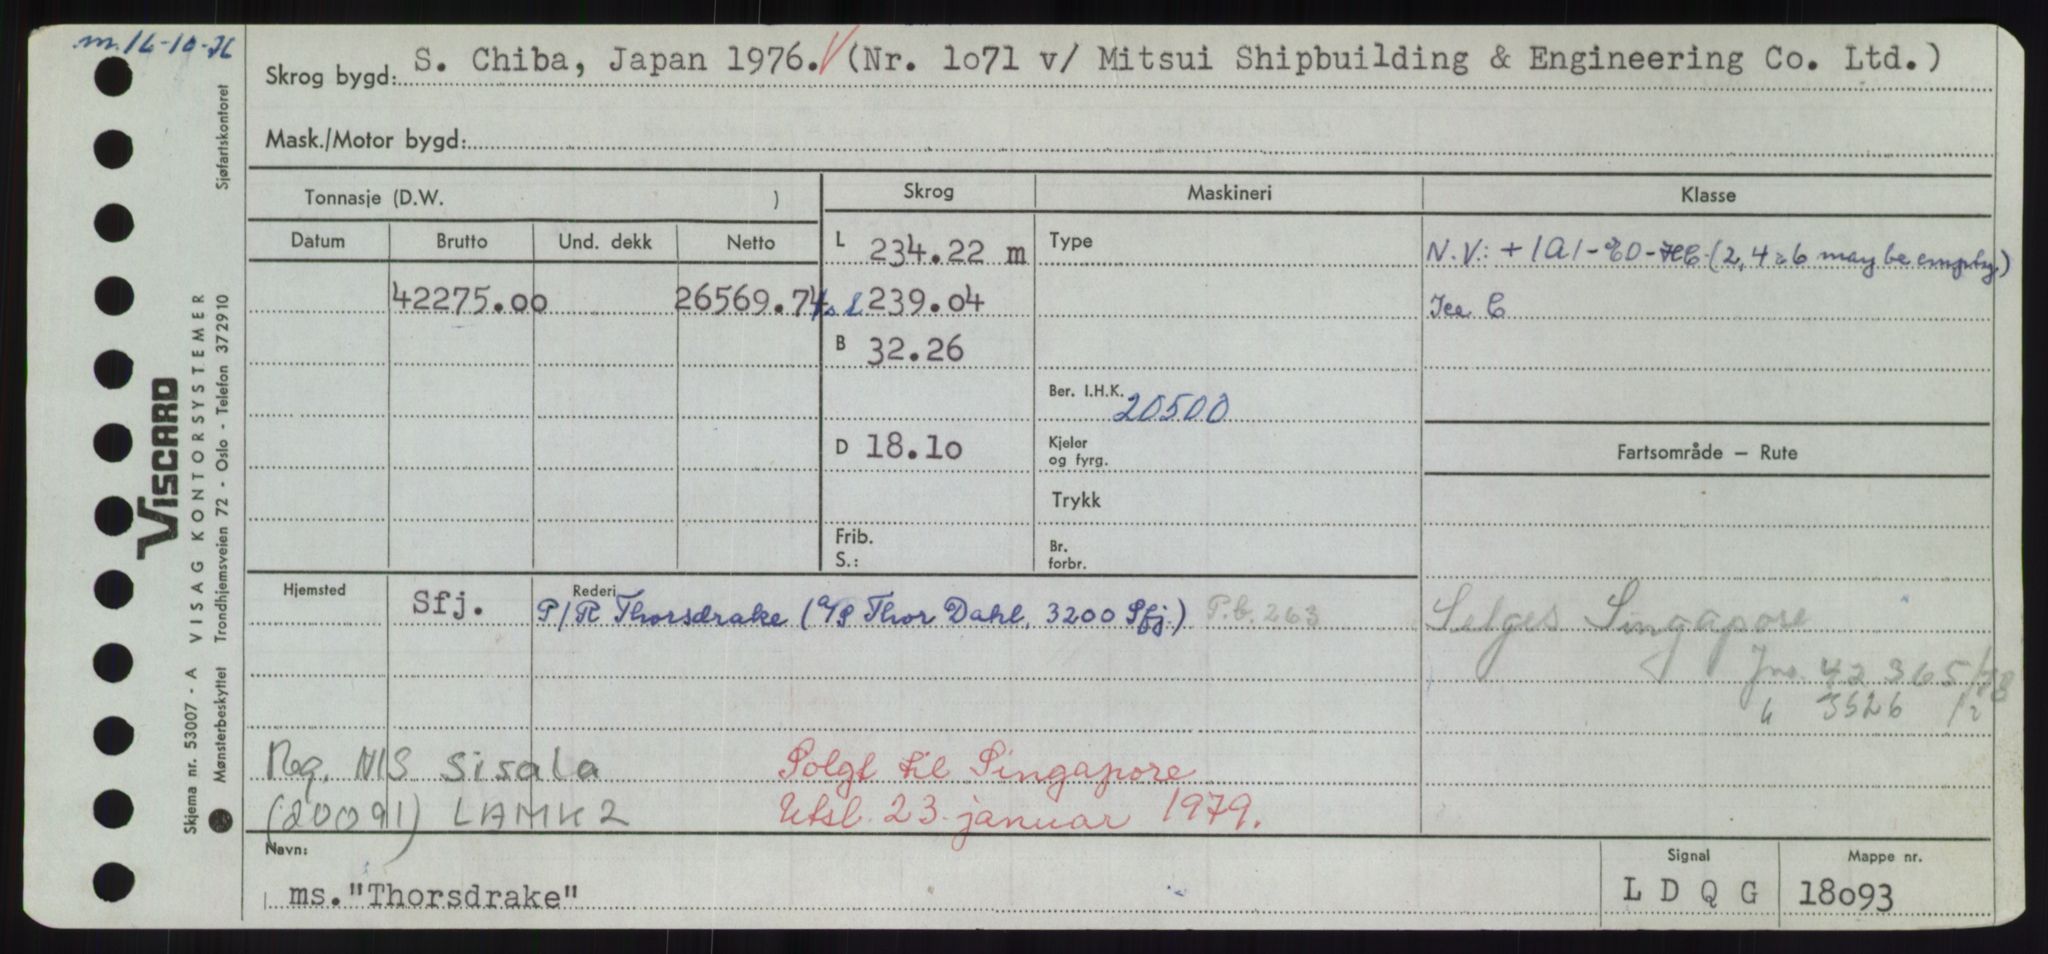 m. 16-10-76
Skrog bygd: S. Chiba, Japan 1976. (Nr. 1o71 v/ Mitsui Shipbuilding & Engineering Co. Ltd.)
Mask./Motor bygd:
Tonnasje (D.W. )
Skrog
Maskineri
Klasse
Datum Brutto Und. dekk Netto
L 234.22 m
Type
N.V.: + 1A1-EO-HC (2, 4 & 6 may be empty.)
42275.oo 26569.74
239.o4
Ice C
B 32.26
Ber. I.H.K. 20500
D 18.1o
Kjeler
og fyrg.
Fartsområde – Rute
Trykk
Frib.
S.:
Br.
forbr.
Hjemsted Sfj.
Rederi
P/R Thorsdrake (A/S Thor Dahl, 3200 Sfj.) P.b. 263
Selges Singapore
Jnr. 42365/78
" 3526 /
Reg. NIS Sisala
(20091) LAMK2
Solgt til Singapore
Utsl. 23. januar 1979.
Navn:
ms."Thorsdrake"
Signal
L D Q G
Mappe nr.
18o93
Sjøfartskontoret
VISCARD
VISAG KONTORSYSTEMER
Skjema nr. 53007 - A
Mønsterbeskyttet Trondhjemsveien 72 - Oslo - Telefon 372910